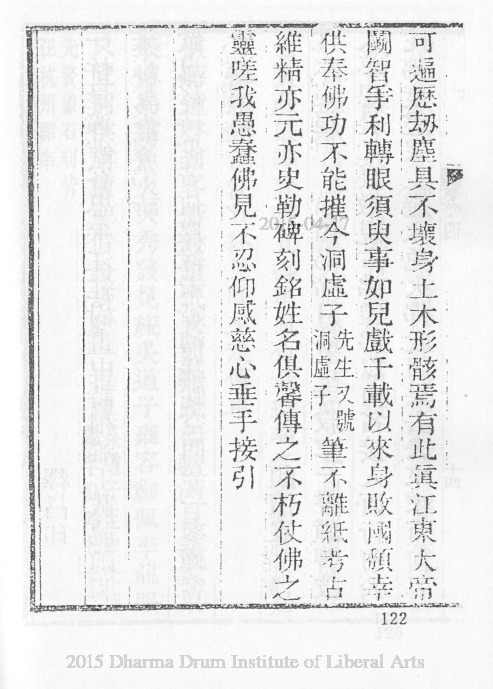 可遍歷劫塵具不壞身土木形骸焉有此眞江東大帝
鬭智爭利轉眼須臾事如兒戲千載以來身敗國頹幸
供奉佛功不能摧今洞虛子先生又號洞虛子筆不離紙考古
維精亦元亦史勒碑刻銘姓名俱馨傳之不朽仗佛之
靈嗟我愚蠢佛見不忍仰感慈心垂手接引
122
2015 Dharma Drum Institute of Liberal Arts